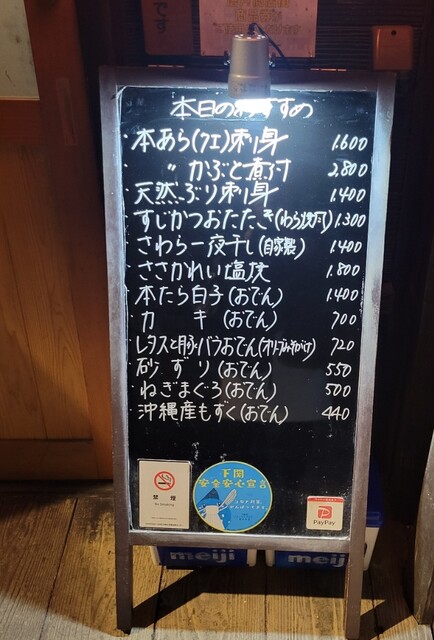 です
本日のおすすめ
・本あら(クエ)刺身 1.600
・ 〃 かぶと煮付 2.800
天然ぶり刺身 1.400
すじかつおたたき(わら焼き) 1.300
さわら一夜干し(自家製) 1.400
ささかれい塩焼 1.800
本たら白子(おでん) 1.400
カキ(おでん) 700
レタスと豚バラおでん 720
砂ずり(おでん) 550
ねぎまぐろ(おでん) 500
沖縄産もずく(おでん) 440
禁煙
No Smoking
下関
安全安心宣言
PayPay
meiji
meiji